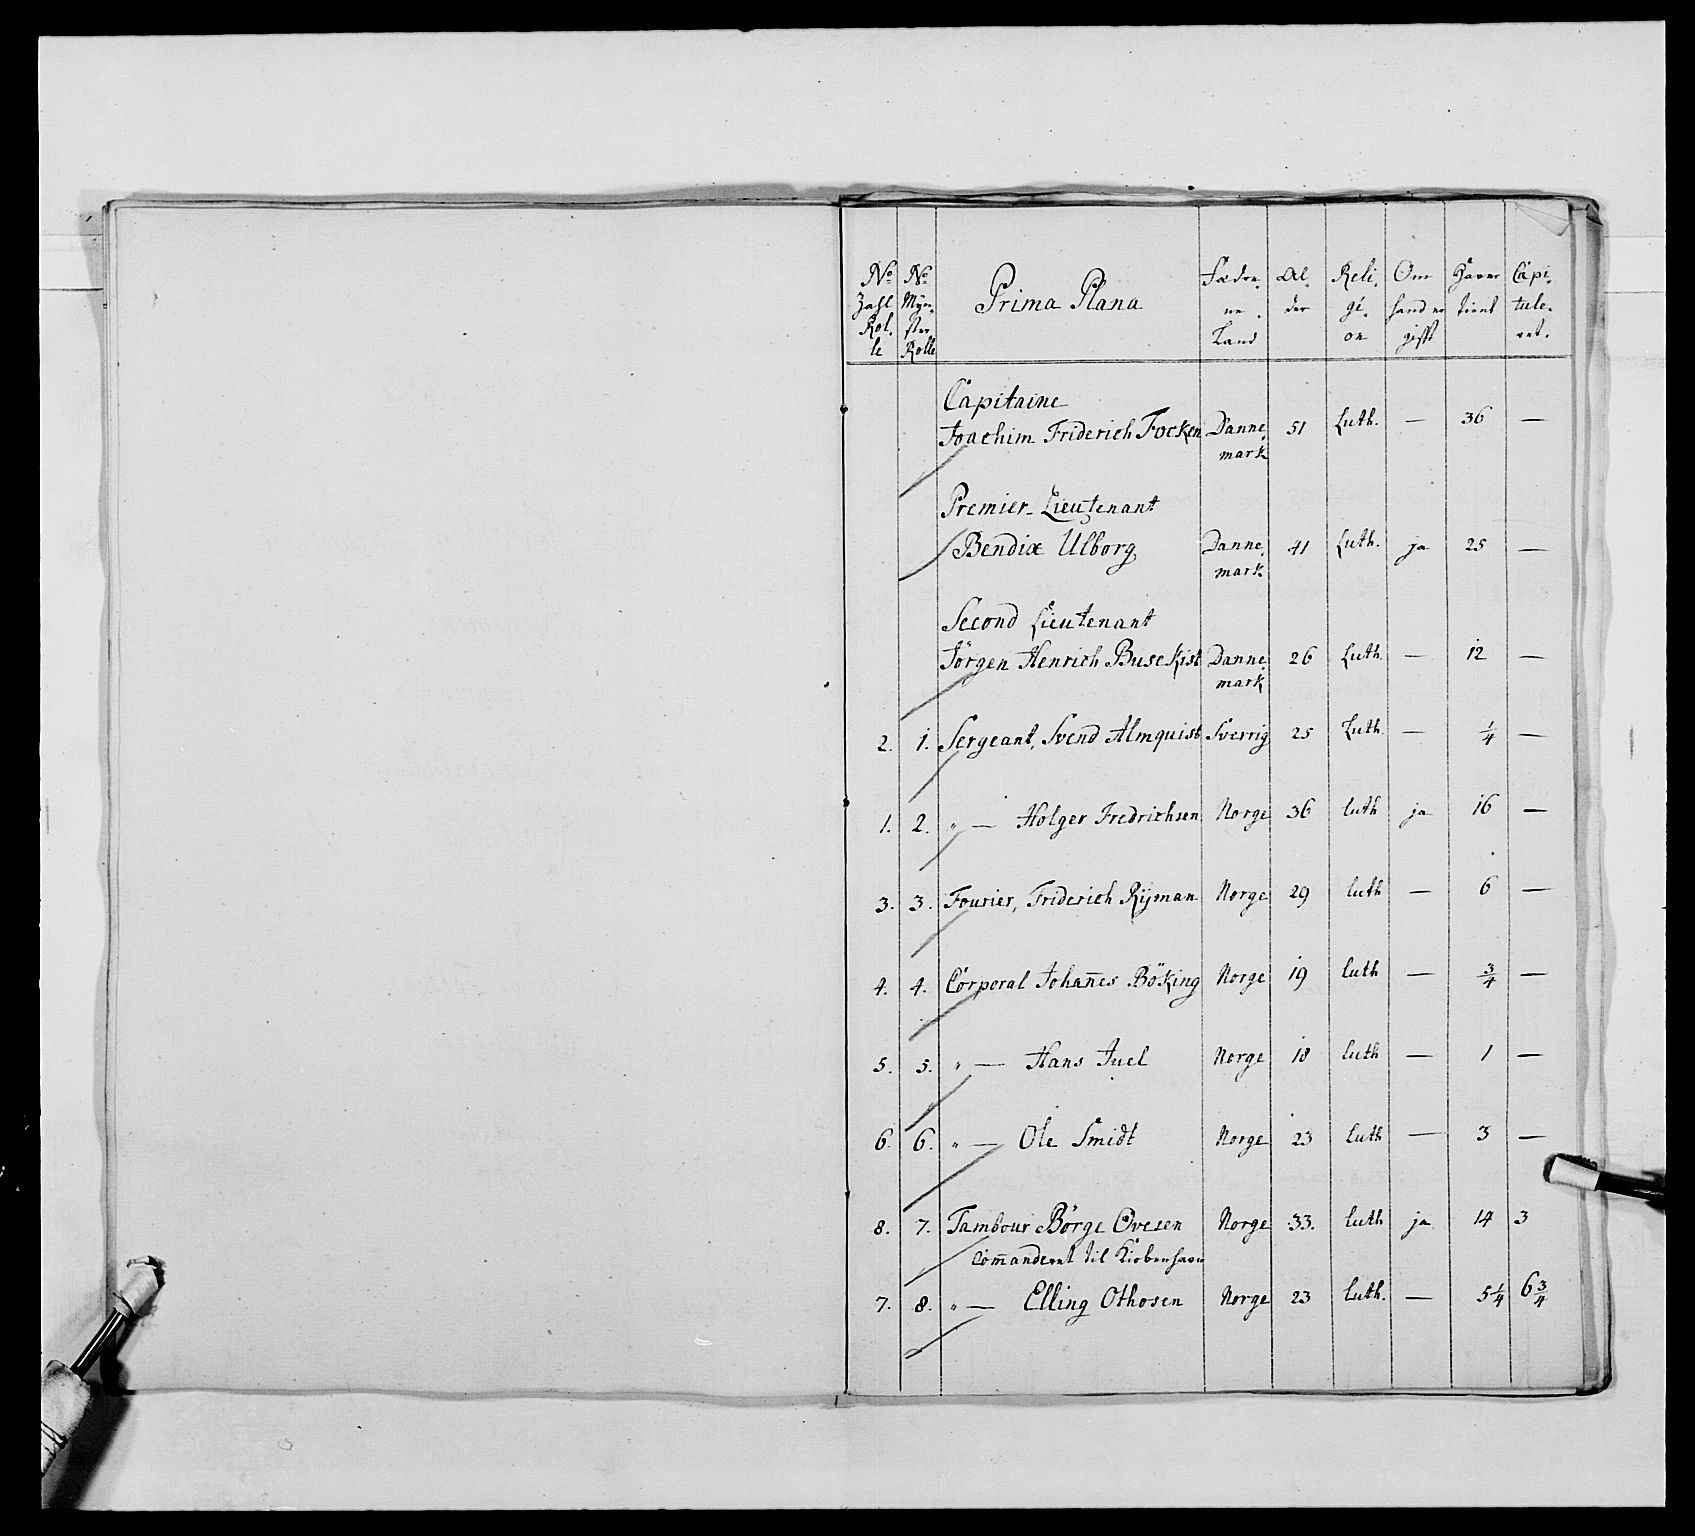 No Zahl Rol. le | No Myn- ster Rolle | Prima Plana | Fæder. ne. Land | Al- der | Reli. gi. on | Om hand er gifft | Haver tient | Capi. tule. ret.
Capitaine
Joachim Friderich Focken Danne. 51 Luth. — 36 —
mark
Premier-Lieutenant
Bendix Ulborg Danne. 41 Luth. ja 25 —
mark
Second Lieutenant
Jörgen Henrich Busekist Danne. 26 Luth. — 12 —
mark
2. 1. Sergeant, Svend Almquist Sverrig 25 Luth. — 1/4 —
1. 2. " — Holger Fredrichsen Norge 36 luth ja 16 —
3. 3. Fourier, Friderich Rÿman Norge 29 luth — 6 —
4. 4. Corporal Johan̄es Böking Norge 19 luth — 3/4 —
5. 5. " — Hans Juel Norge 18 luth — 1 —
6. 6. " — Ole Smidt Norge 23 luth — 3 —
8. 7. Tambour Börge Ovesen Norge 33. luth ja 14 3
Com̄anderet til Kiøbenhavn
7. 8. " — Elling Othosen Norge 23 luth. — 5 1/4 6 3/4